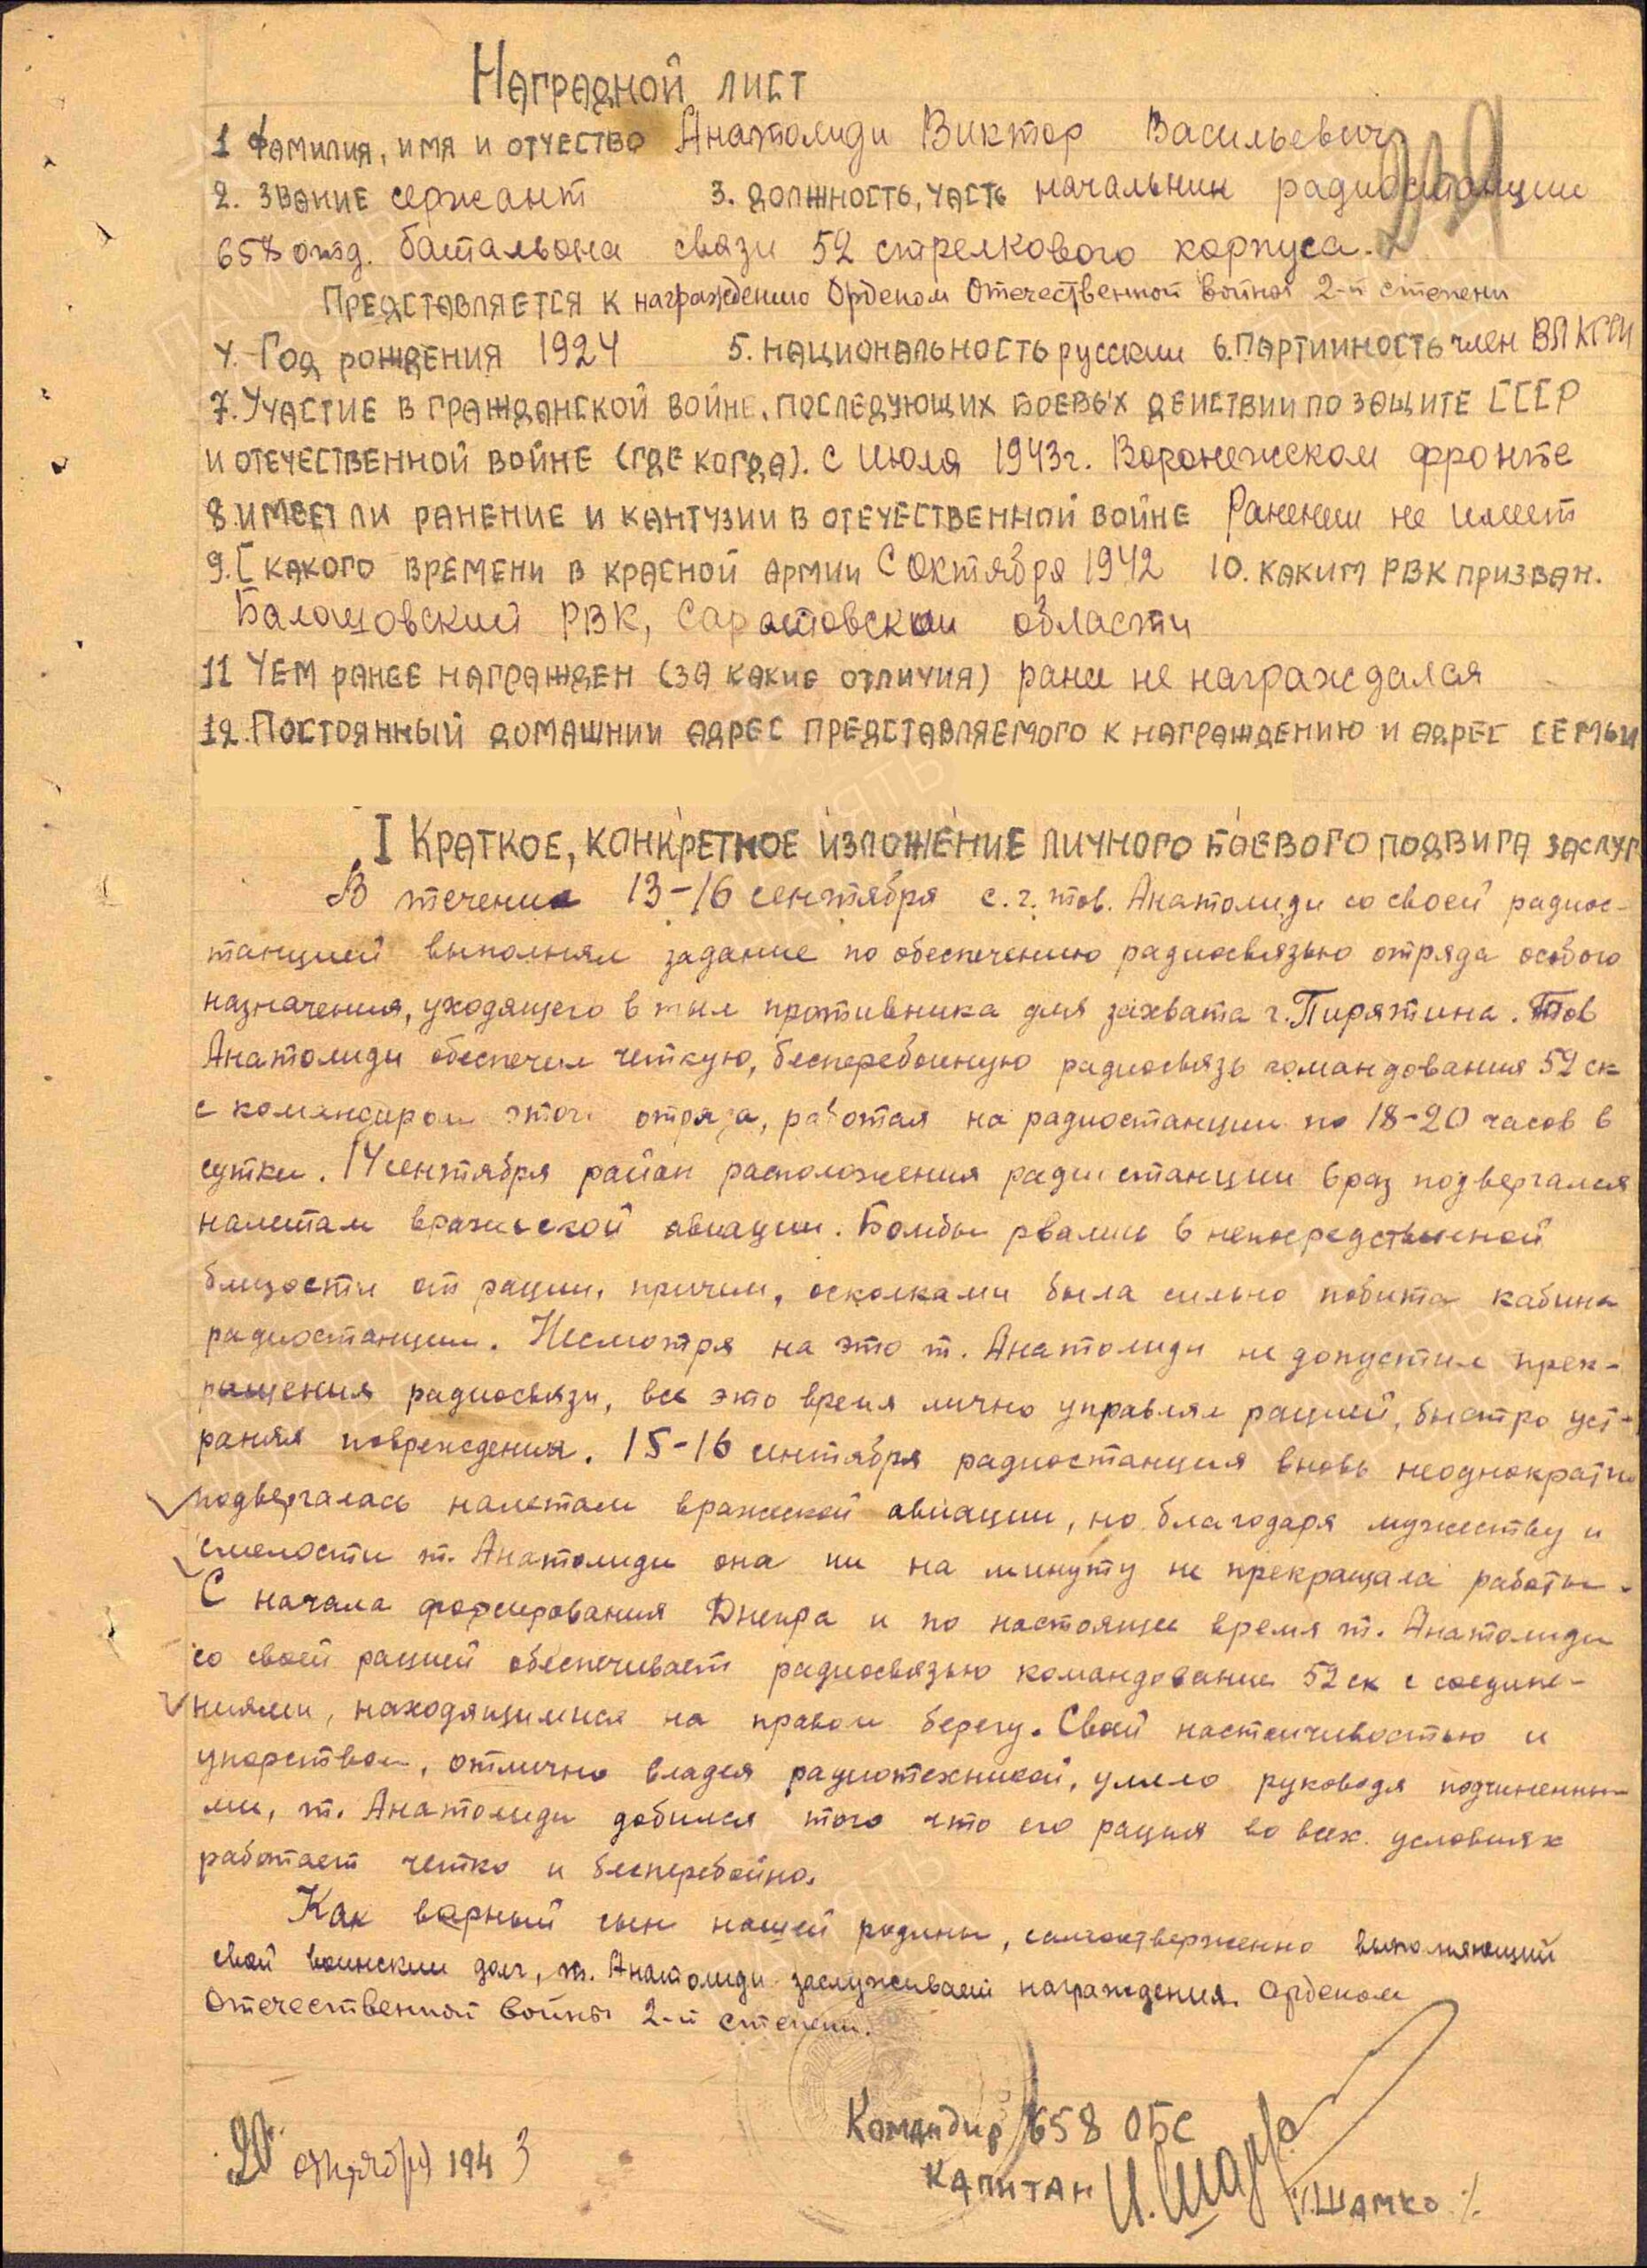 Наградной лист
1 Фамилия, имя и отчество Анатолиди Виктор Васильевич
2. Звание сержант 3. Должность, часть начальник радиостанции
658 отд. батальона связи 52 стрелкового корпуса.
Представляется к награждению Орденом Отечественной войны 2-й степени
4. Год рождения 1924 5. Национальность русский 6. Партийность член ВЛКСМ
7. Участие в гражданской войне, последующих боевых действии по защите СССР
и отечественной войне (где когда). с июля 1943г. Воронежском фронте
8. имеет ли ранение и кантузии в отечественной войне Ранении не имеет
9. С какого времени в красной армии С Октября 1942 10. каким РВК призван.
Балашовский РВК, Саратовской области
11 Чем ранее награжден (за какие отличия) ранее не награждался
12. Постоянный домашнии адрес представляемого к награждению и адрес семьи
I Краткое, конкретное изложение личного боевого подвига заслуг
В течение 13-16 сентября с.г. тов. Анатолиди со своей радиос-
танцией выполнял задание по обеспечению радиосвязью отряда особого
назначения, уходящего в тыл противника для захвата г. Пирятина. Тов
Анатолиди обеспечил четкую, бесперебойную радиосвязь командования 52 ск
с командиром этого отряда, работая на радиостанции по 18-20 часов в
сутки. 14 сентября район расположения радиостанции 6 раз подвергался
налетам вражеской авиации. Бомбы рвались в непосредственной
близости от рации, причем, осколками была сильно побита кабина
радиостанции. Несмотря на это т. Анатолиди не допустил прек-
ращения радиосвязи, все это время лично управлял рацией, быстро уст-
раняя повреждения. 15-16 сентября радиостанция вновь неоднократно
подвергалась налетам вражеской авиации, но благодаря мужеству и
смелости т. Анатолиди она ни на минуту не прекращала работы.
С начала форсирования Днепра и по настоящее время т. Анатолиди
со своей рацией обеспечивает радиосвязью командование 52 ск с соедине-
ниями, находящимися на правом берегу. Своей настойчивостью и
упорством, отлично владея радиотехникой, умело руководя подчиненны-
ми, т. Анатолиди добился того что его рация во всех условиях
работает четко и бесперебойно.
Как верный сын нашей родины, самоотверженно выполняющий
свой воинский долг, т. Анатолиди заслуживает награждения Орденом
Отечественной войны 2-й степени.
Командир 658 ОБС
20 октября 1943
капитан И. Шамко /Шамко/